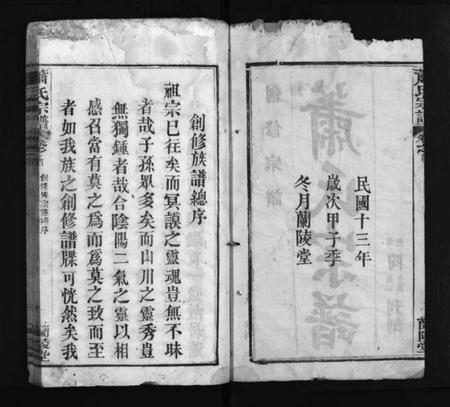 民國十三年
歲次甲子季
冬月蘭陵堂
蘭陵堂
創修族譜總序
祖宗已往矣而冥漠之靈魂豈無不昧
者哉子孫眾多矣而山川之靈秀豈
無獨鍾者哉合陰陽二氣之靈以相
感召當有莫之為而為莫之致而至
者如我族之創修譜牒可恍然矣我
蕭氏宗譜
卷首
創修族譜總序
蘭陵堂